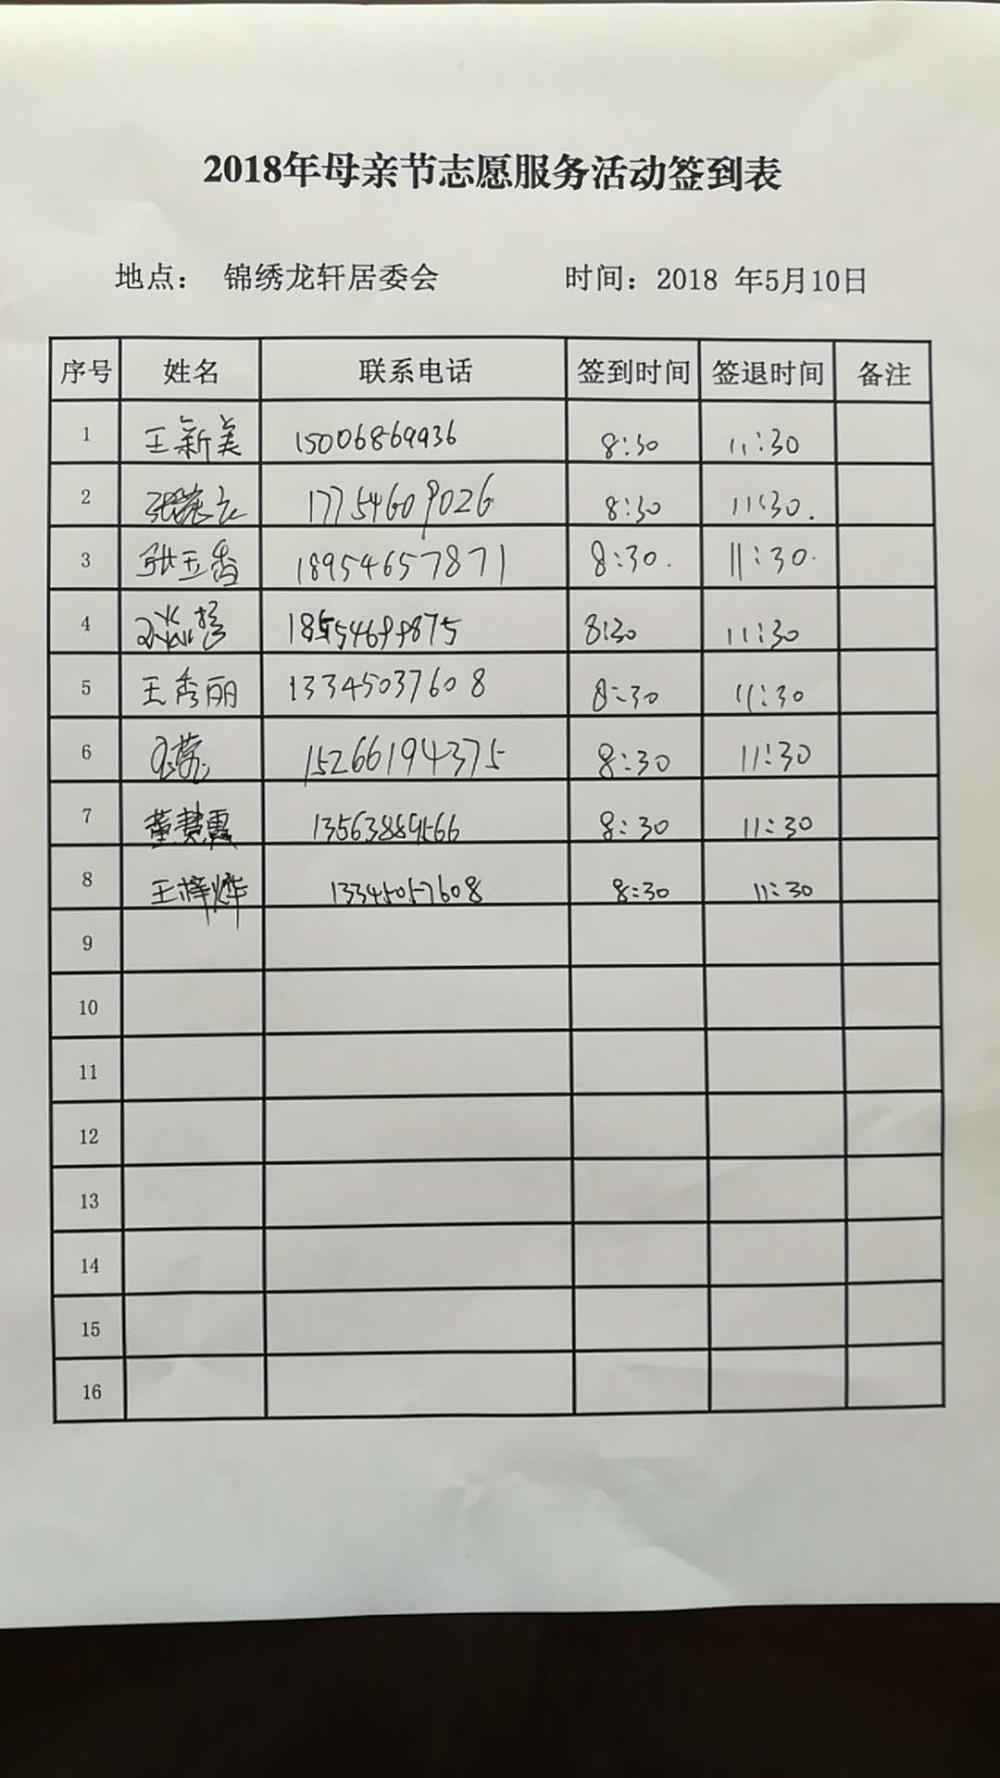 2018年母亲节志愿服务活动签到表
地点： 锦绣龙轩居委会 时间：2018 年5月10日
序号 姓名 联系电话 签到时间 签退时间 备注
1 王新美 15006869936 8:30 11:30
2 17754609026 8:30 11:30.
3 张玉香 18954657871 8:30. 11:30.
4 8:30 11:30
5 王秀丽 13345037608 8:30 11:30
6 15266194375 8:30 11:30
7 董慧霞 8:30 11:30
8 王梓烨 13345057608 8:30 11:30
9
10
11
12
13
14
15
16